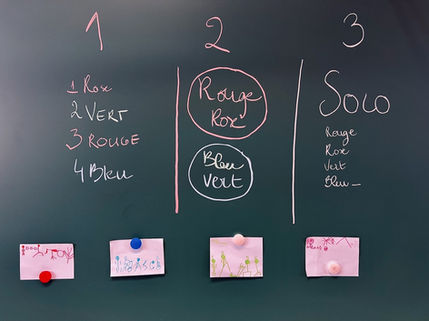 1
1 Rox
2 VERT
3 ROUGE
4 Bleu
2
Rouge
Rox
Bleu
Vert
3
SOLO
Rouge
Rox
Vert
Bleu